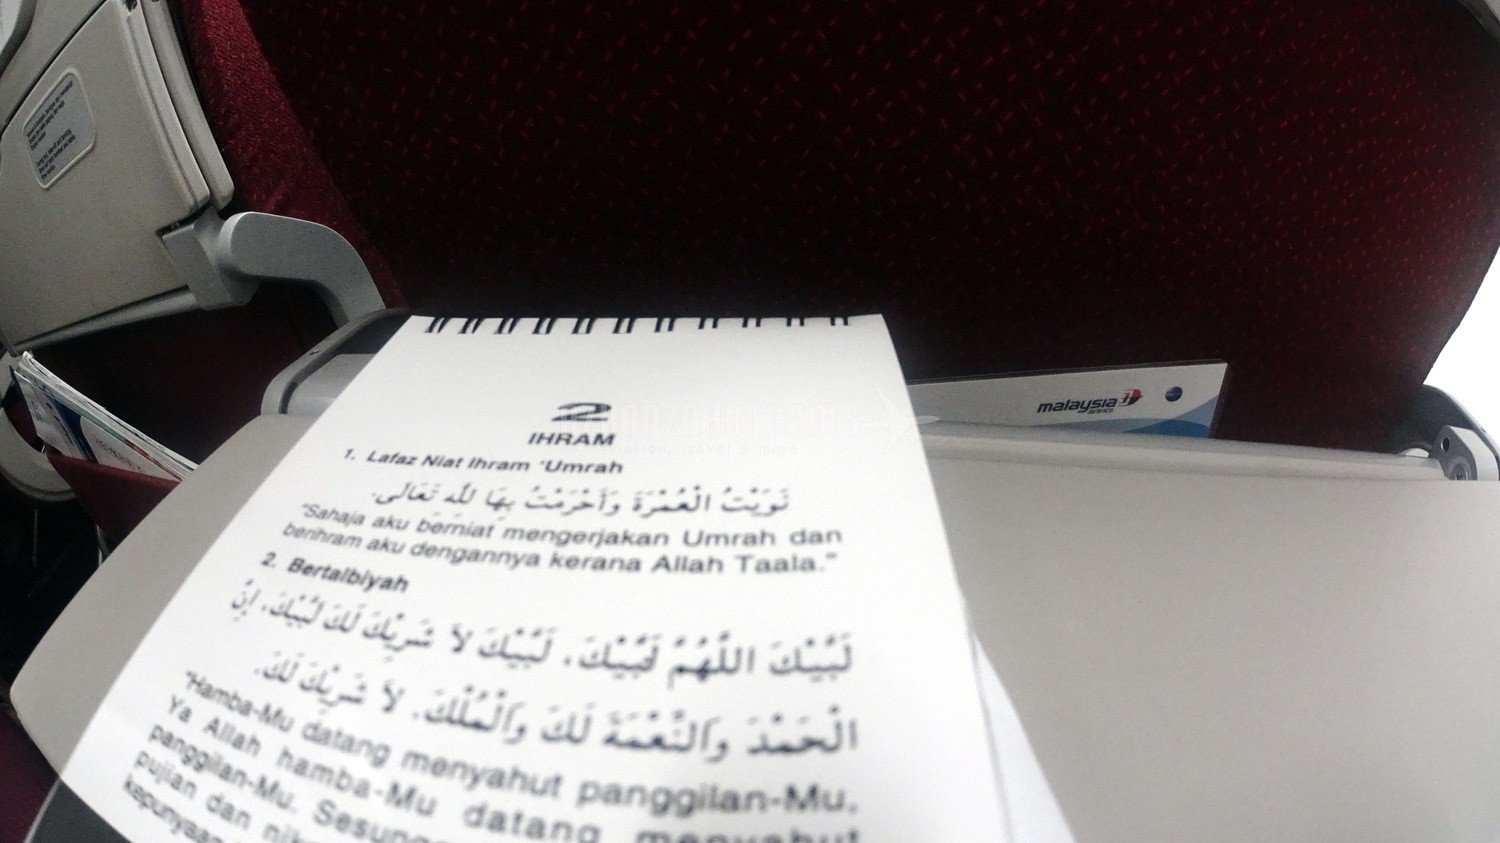 malaysia
2
IHRAM
1. Lafaz Niat Ihram 'Umrah
نَوَيْتُ الْعُمْرَةَ وَأَحْرَمْتُ بِهَا لِلَّهِ تَعَالَى.
"Sahaja aku berniat mengerjakan Umrah dan
berihram aku dengannya kerana Allah Taala."
2. Bertalbiyah
لَبَّيْكَ اللَّهُمَّ لَبَّيْكَ، لَبَّيْكَ لاَ شَرِيْكَ لَكَ لَبَّيْكَ، إِنَّ
الْحَمْدَ وَالنِّعْمَةَ لَكَ وَالْمُلْكَ، لاَ شَرِيْكَ لَكَ.
"Hamba-Mu datang menyahut panggilan-Mu.
Ya Allah hamba-Mu datang menyahut
panggilan-Mu.
pujian dan